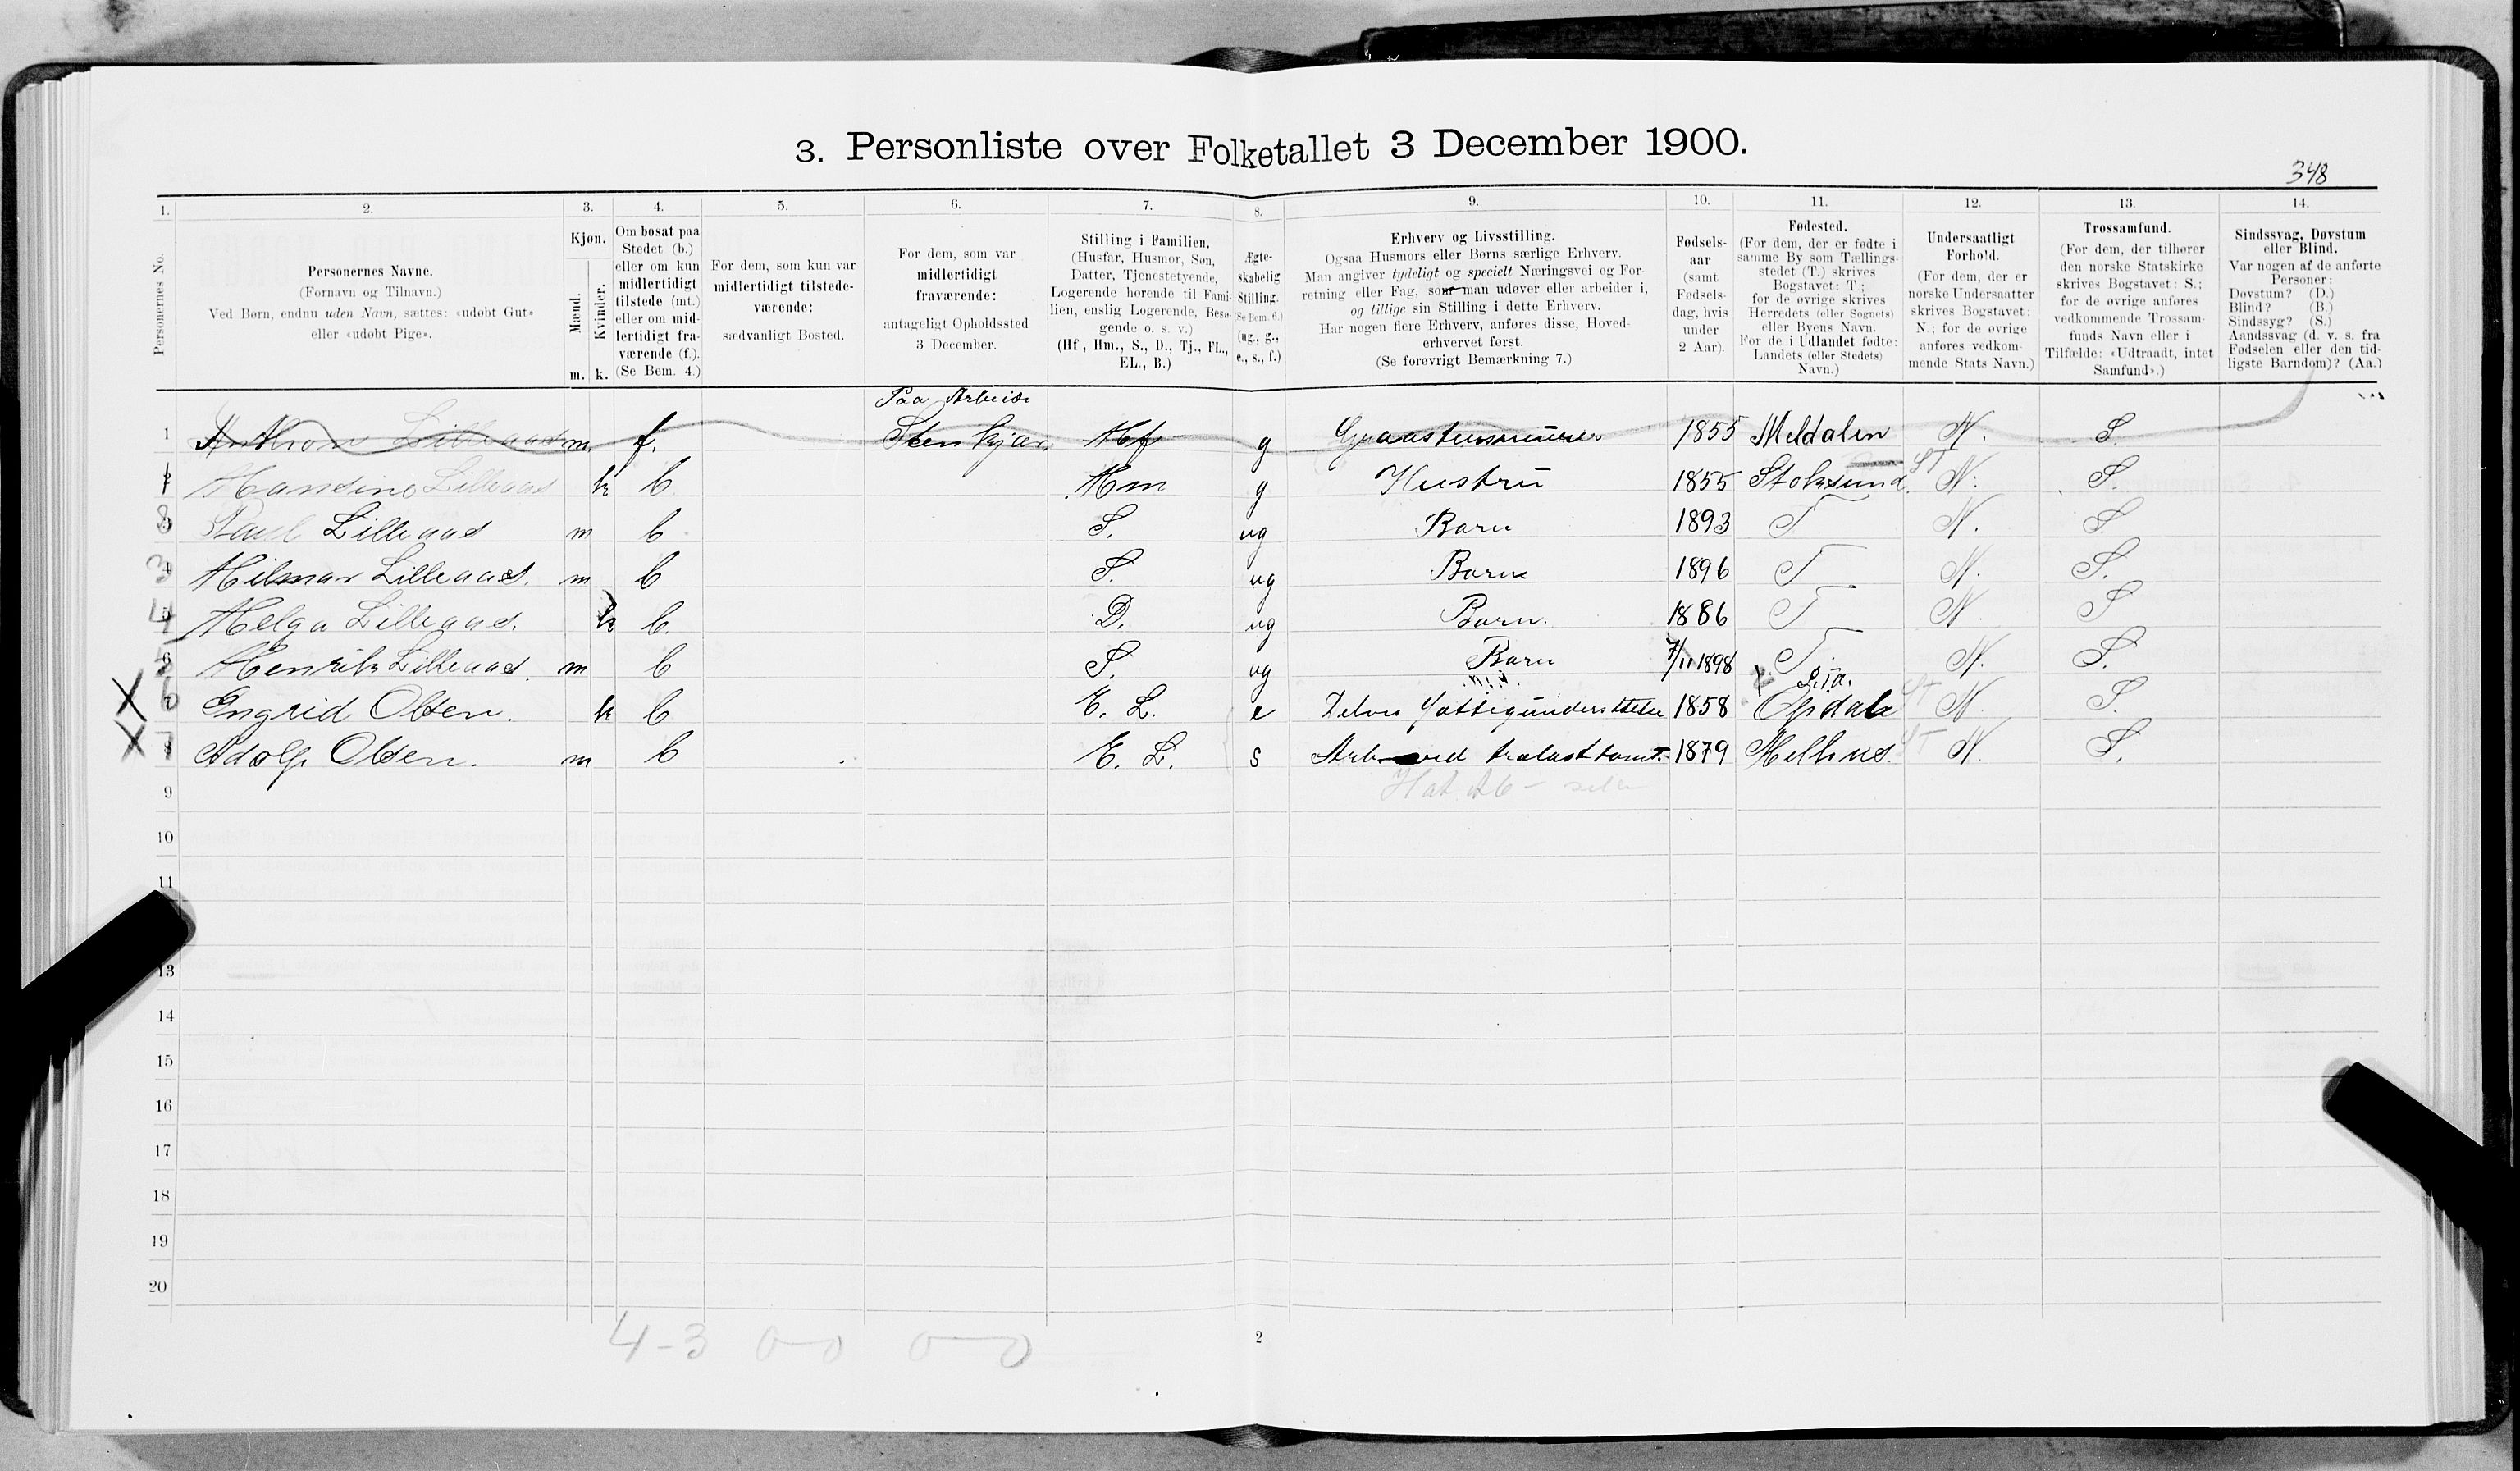 3. Personliste over Folketallet 3 December 1900.
348
1. 2. 3. 4. 5. 6. 7. 8. 9. 10. 11. 12. 13. 14.
Personernes No.
Personernes Navne.
(Fornavn og Tilnavn.)
Ved Børn, endnu uden Navn, sættes: «udøbt Gut»
eller «udøbt Pige».
Kjøn.
Mænd.
Kvinder.
m. k.
Om bosat paa
Stedet (b.)
eller om kun
midlertidigt
tilstede (mt.)
eller om mid-
lertidigt fra-
værende (f.).
(Se Bem. 4.)
For dem, som kun var
midlertidigt tilstede-
værende:
sædvanligt Bosted.
For dem, som var
midlertidigt
fraværende:
antageligt Opholdssted
3 December.
Stilling i Familien.
(Husfar, Husmor, Søn,
Datter, Tjenestetyende,
Logerende hørende til Fami-
lien, enslig Logerende, Besø-
gende o. s. v.)
(Hf., Hm., S., D., Tj., FL.,
EL., B.)
Ægte-
skabelig
Stilling.
(Se Bem. 6.)
(ug., g.,
e., s., f.)
Erhverv og Livsstilling.
Ogsaa Husmors eller Børns særlige Erhverv.
Man angiver tydeligt og specielt Næringsvei og For-
retning eller Fag, som man udøver eller arbeider i,
og tillige sin Stilling i dette Erhverv.
Har nogen flere Erhverv, anføres disse, Hoved-
erhvervet først.
(Se forøvrigt Bemærkning 7.)
Fødsels-
aar
(samt
Fødsels-
dag, hvis
under
2 Aar).
Fødested.
(For dem, der er fødte i
samme By som Tællings-
stedet (T.) skrives
Bogstavet: T;
for de øvrige skrives
Herredets (eller Sognets)
eller Byens Navn.
For de i Udlandet fødte:
Landets (eller Stedets)
Navn.)
Undersaatligt
Forhold.
(For dem, der er
norske Undersaatter
skrives Bogstavet:
N.; for de øvrige
anføres vedkom-
mende Stats Navn.)
Trossamfund.
(For dem, der tilhører
den norske Statskirke
skrives Bogstavet: S.;
for de øvrige anføres
vedkommende Trossam-
funds Navn eller i
Tilfælde: «Udtraadt, intet
Samfund».)
Sindssvag, Døvstum
eller Blind.
Var nogen af de anførte
Personer:
Døvstum? (D.)
Blind? (B.)
Sindssyg? (S.)
Aandssvag (d. v. s. fra
Fødselen eller den tid-
ligste Barndom)? (Aa.)
Paa Arbeide
1 Anthon Lilleaas m. f. Stenkjær Hf g Graastensmurer 1855 Meldalen N. S.
1 Hansine Lilleaas k b Hm g Hustru 1855 Stoksund. ST N. S.
Paul Lilleaas m b S. ug Barn 1893 T N. S
3 Hilmar Lilleaas. m b S. ug Barn 1896 T N. S.
4 Helga Lilleaas. k b. D. ug Barn. 1886 T N. S
5 Henrik Lilleaas. m b S. ug Barn 7/11 1898 T. N. S.
X 6 Engrid Olsen. k b E. L. e Delvis Fattigunderstøttet 1858 Opdal ST N. S.
X 7 Adolf Olsen. m b E. L. s Arb. ved trælasttomt. 1879 Melhus. ST N. S.
9
10
11
13
14
15
16
17
18
19
20
4-3 0-0 0-0
2